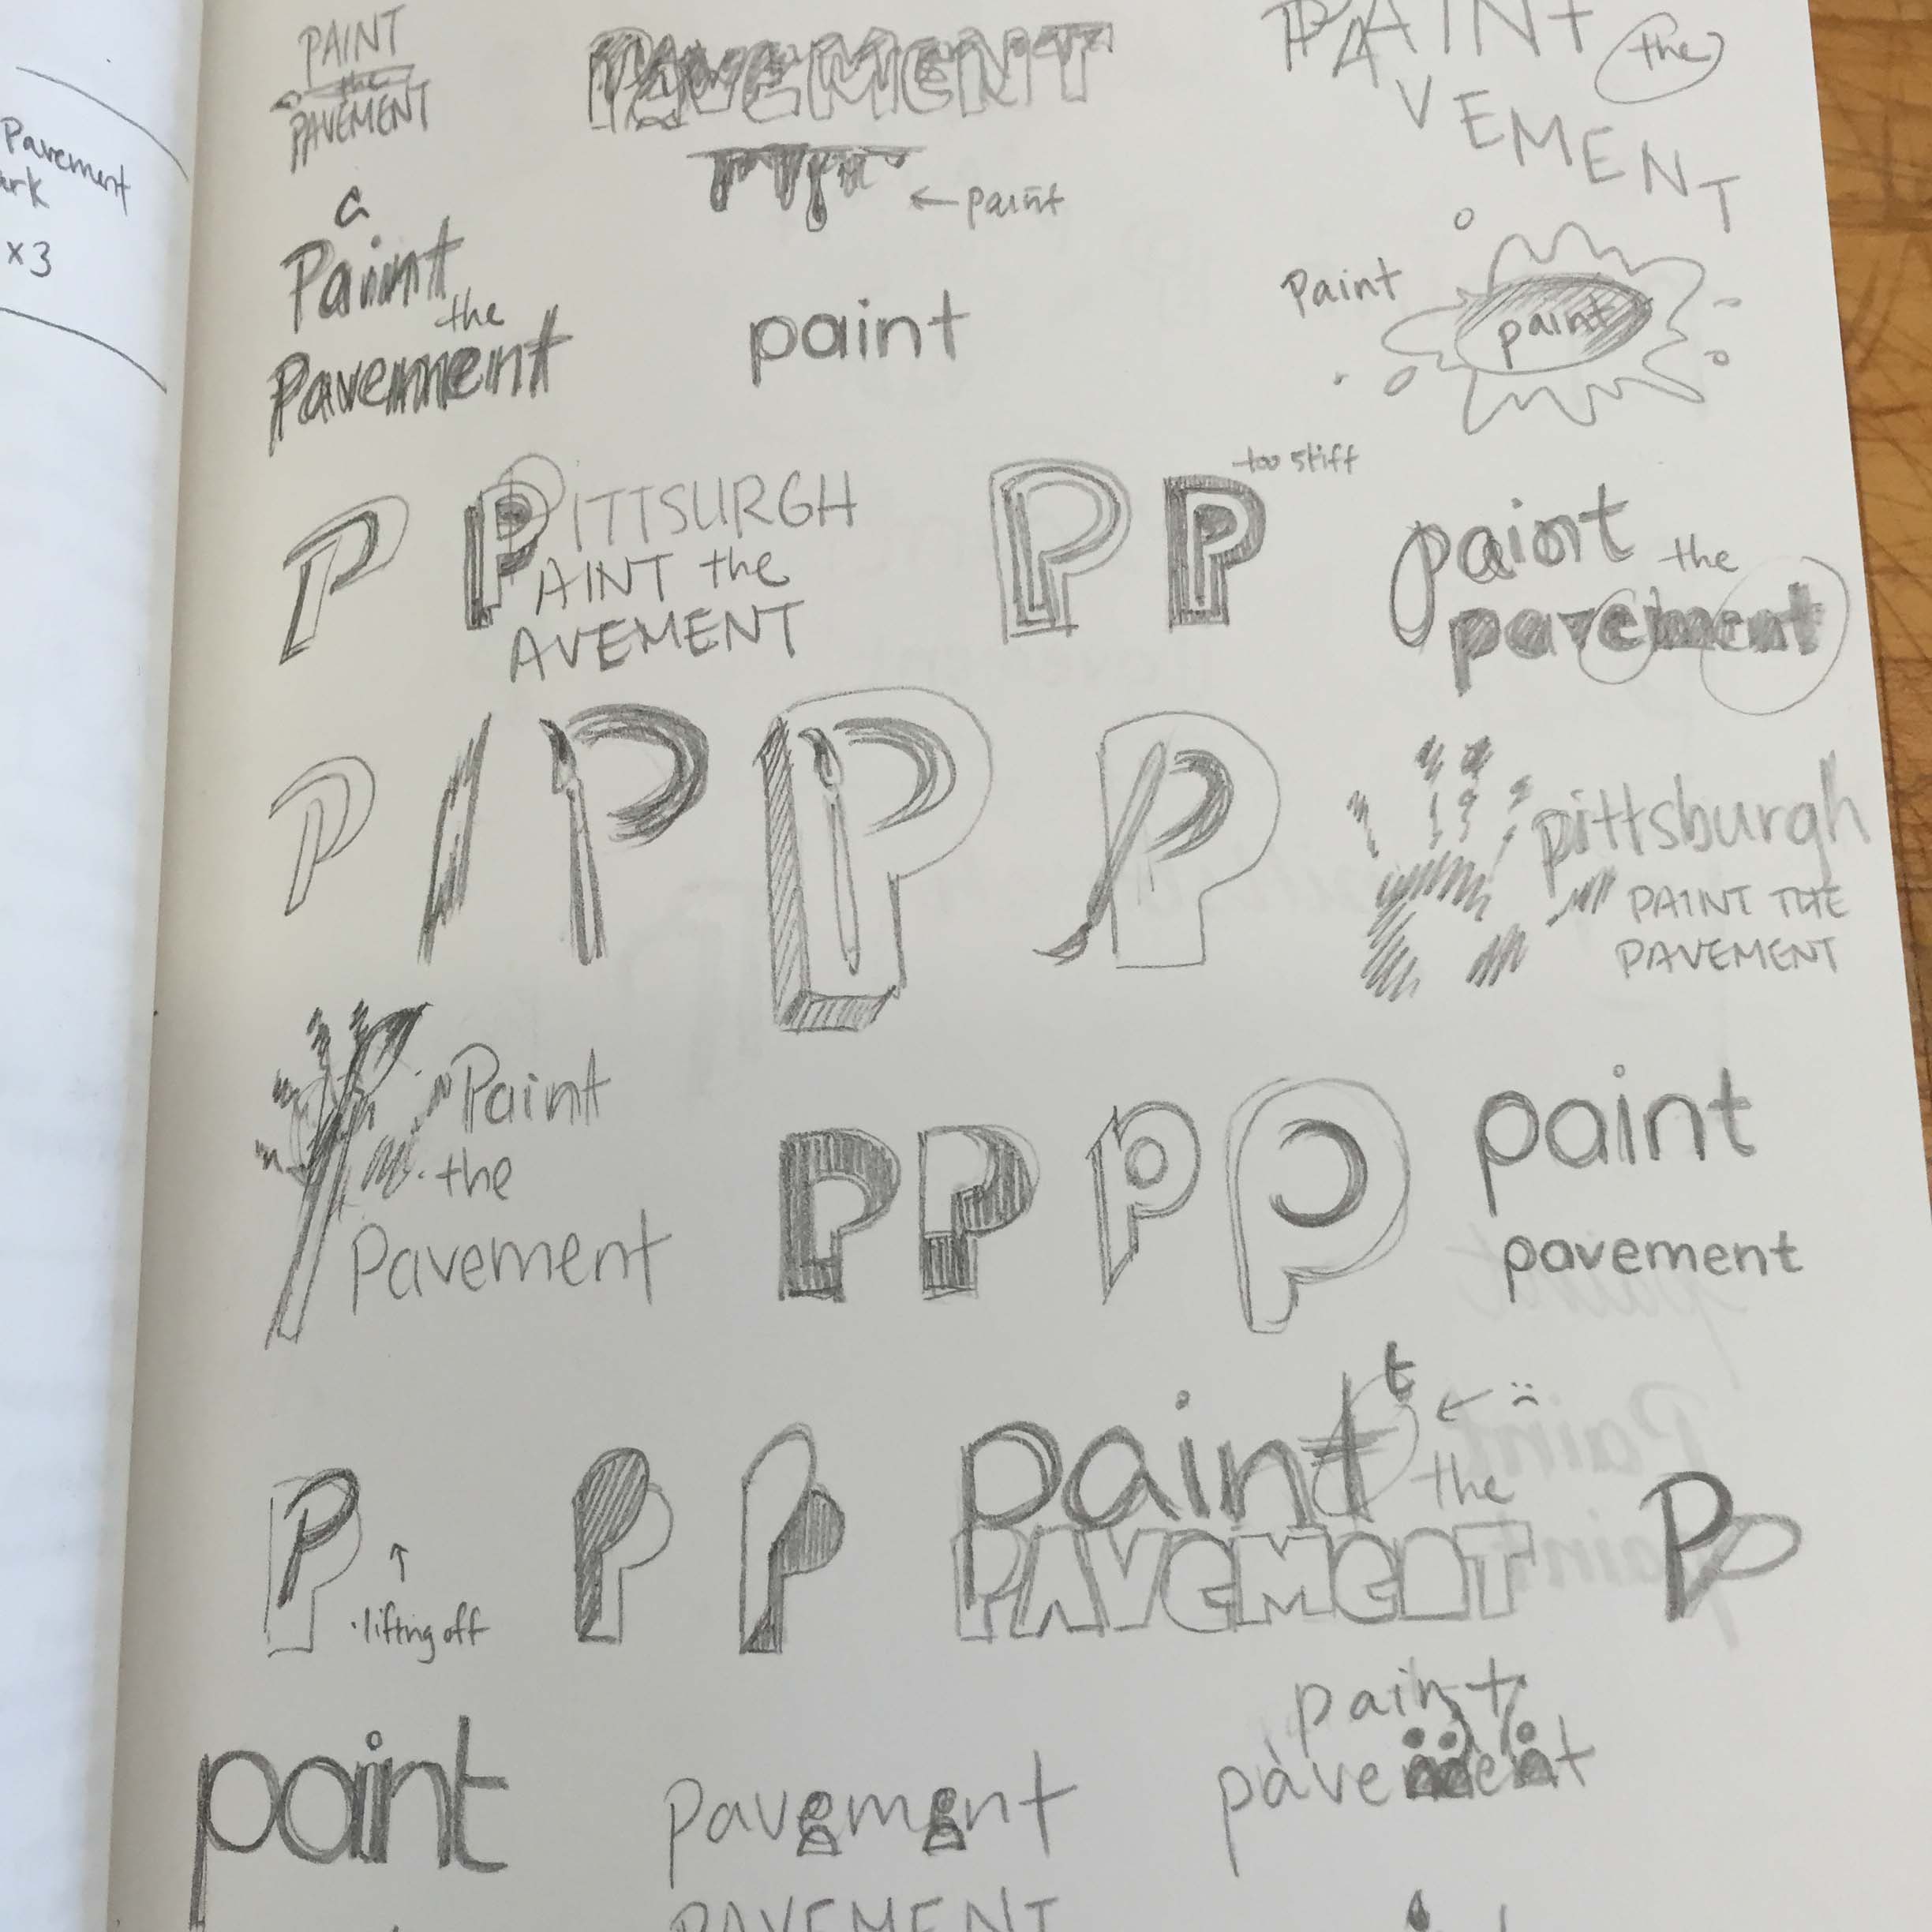 Pavement
x3
PAINT
the
PAVEMENT
PAVEMENT
← paint
PAINT the
PAVEMENT
a
Paint
the
Pavement
paint
Paint
paint
P
P PITTSURGH
PAINT the
PAVEMENT
P P too stiff
paint the
pavement
P P P P
pittsburgh
PAINT THE
PAVEMENT
Paint
the
Pavement
P P P P
paint
pavement
P
↑
·lifting off
P P
paint t ← :(
the
PAVEMENT
PP
paint
pavement
paint
pavement
PAVEMENT